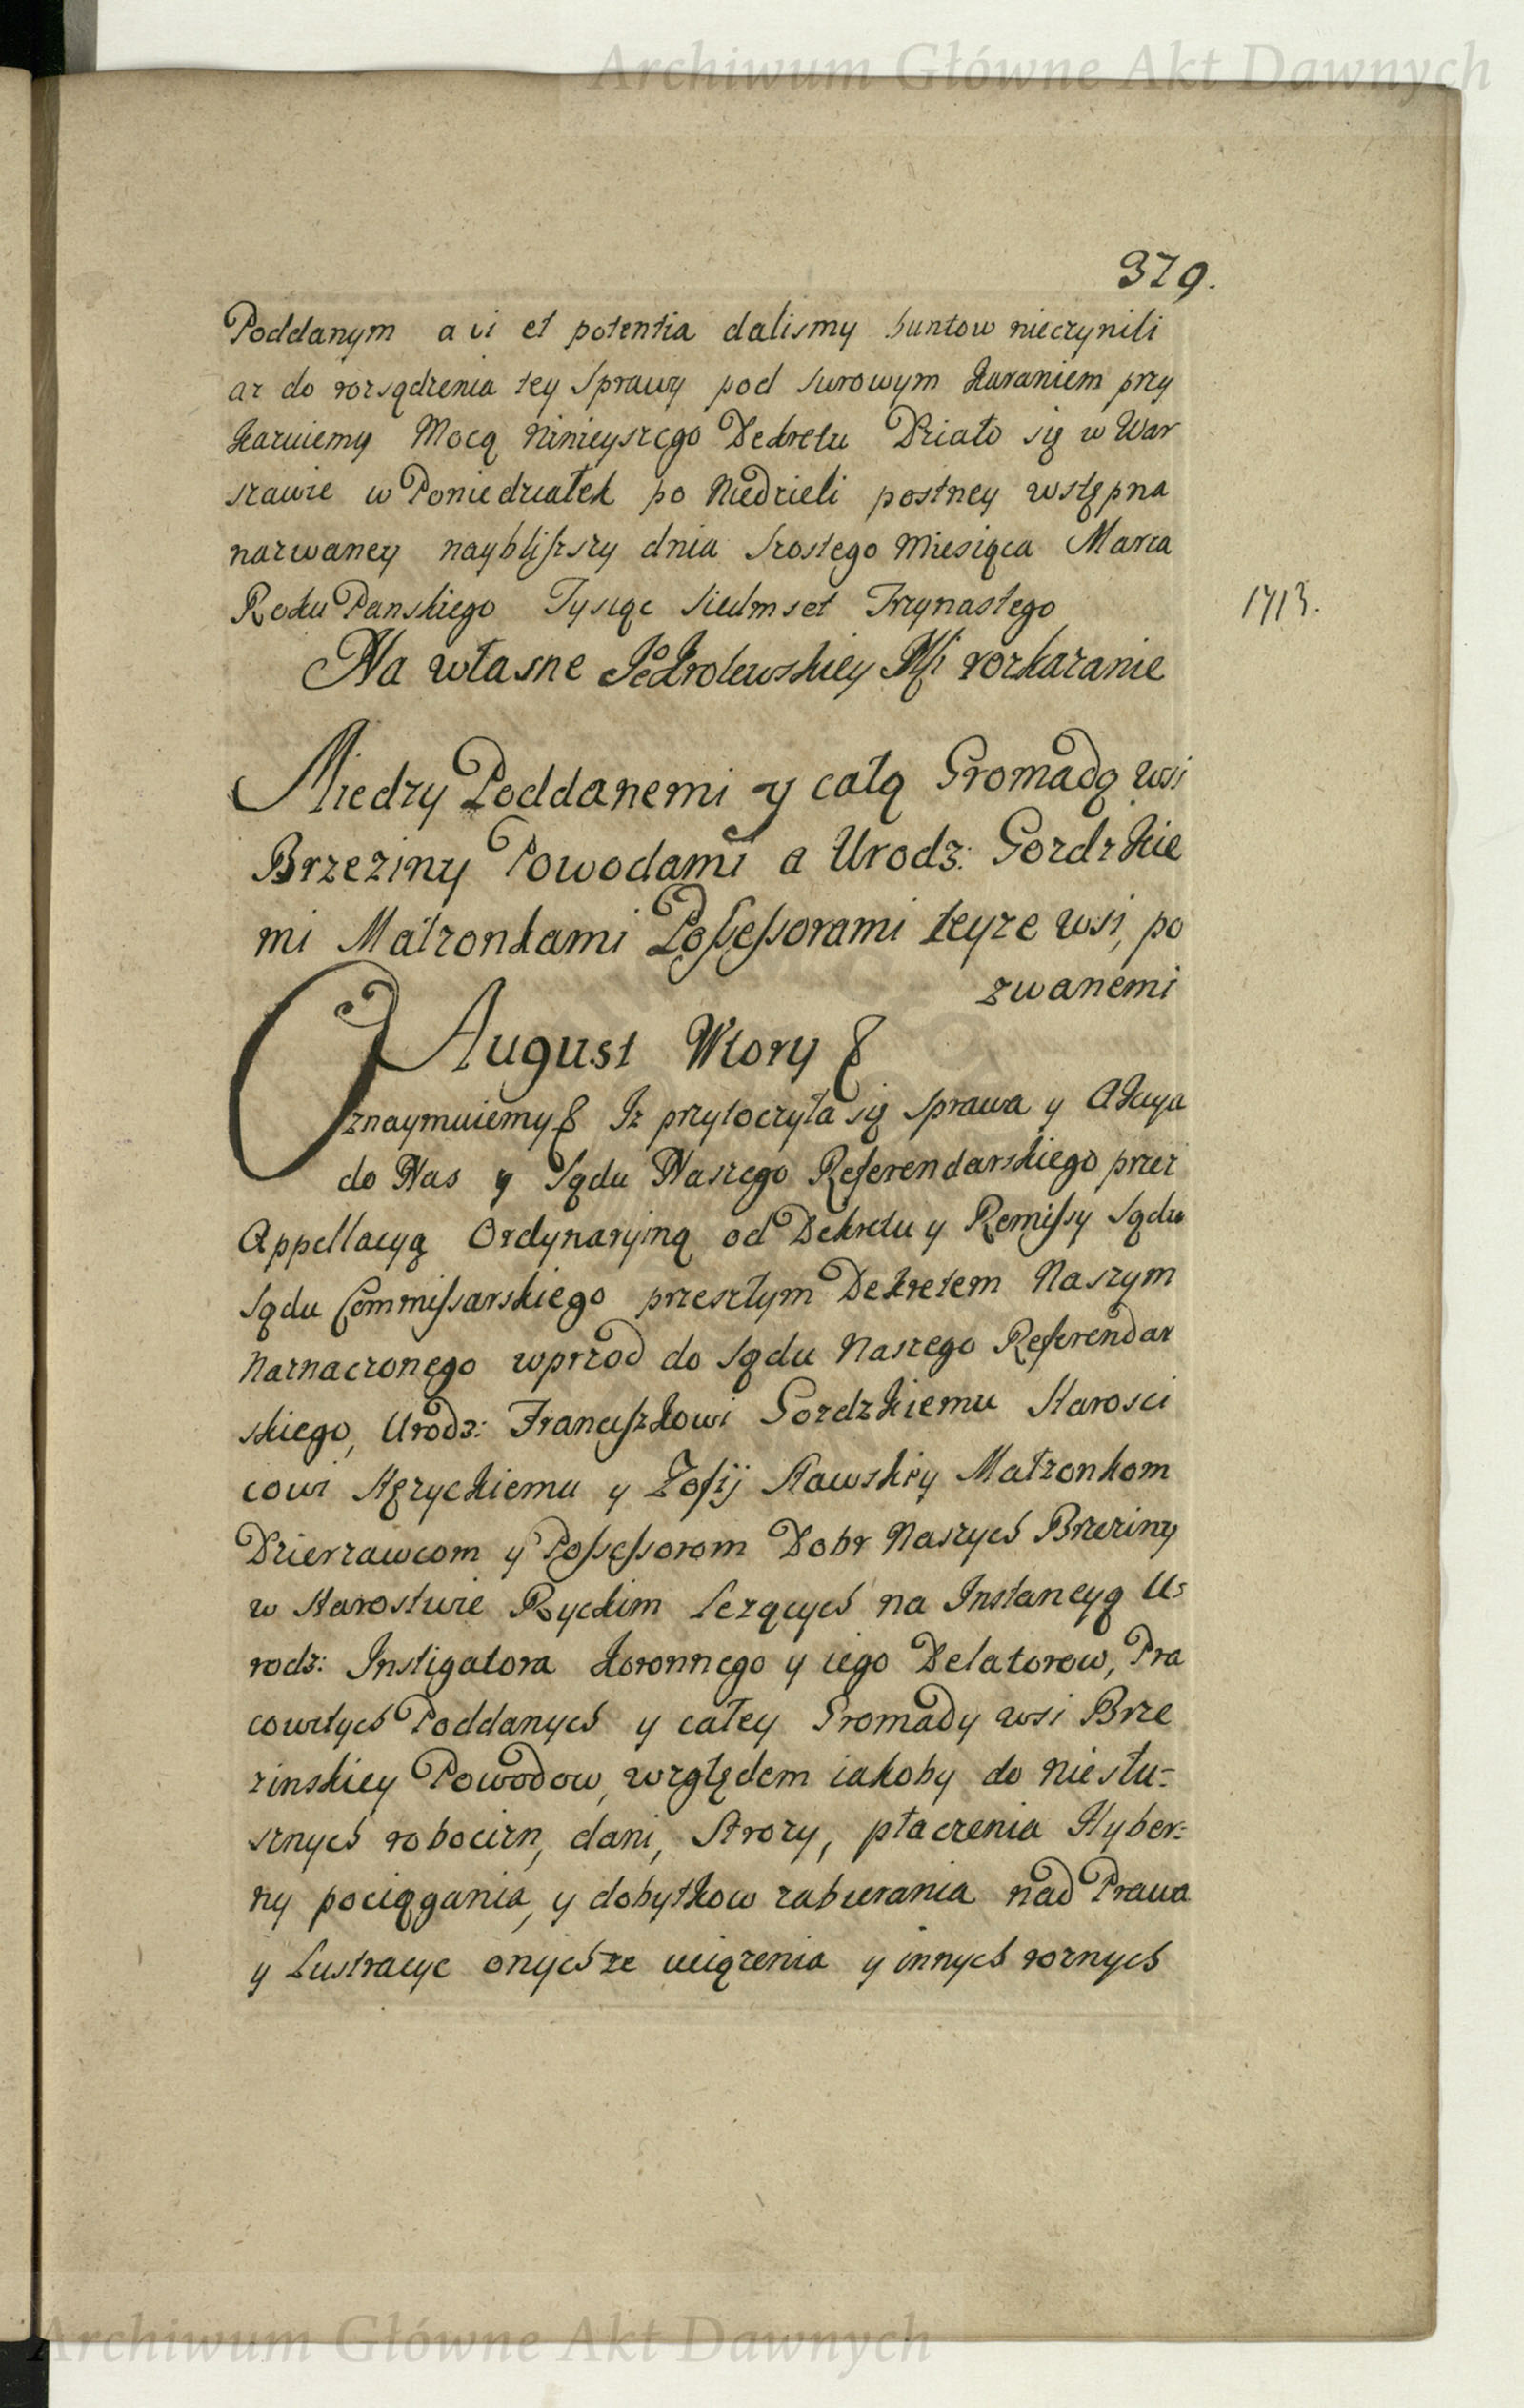 Archiwum Główne Akt Dawnych
379.
Poddanym a vi et potentia dalismy buntow nieczynili
az do rozsądzenia tey Sprawy pod surowym karaniem przy
kazuiemy Mocą Ninieyszego Dekretu Działo się w War
szawie w Poniedziałek po Niedzieli postney wstępna
nazwaney naybliższy dnia szostego Miesiąca Marca
Roku Panskiego Tysiąc Siedmset Trzynastego 1713.
Na własne Je° Krolewskiey Mści rozkazanie
Miedzy Poddanemi y całą Gromadą wsi
Brzeziny Powodami a Urodz: Gozdzkie
mi Małzonkami Possessorami teyze wsi, po
zwanemi
August Wtory &
Oznaymuiemy & Iz przytoczyła się sprawa y Akcya
do Nas y Sądu Naszego Referendarskiego przez
Appellacyą Ordynaryiną od Dekretu y Remissy Sądu
Sądu Commissarskiego przeszłym Dekretem Naszym
Naznaczonego wprzod do Sądu Naszego Referendar
skiego, Urodz: Franciszkowi Gozdzkiemu Starosci
cowi Stęzyckiemu y Zofij Stawskiey Małzonkom
Dzierzawcom y Possessorom Dobr Naszych Brzeziny
w Starostwie Ryckim Lezących na Instancyą U-
rodz: Instigatora Koronnego y iego Delatorow, Pra
cowitych Poddanych y całey Gromady wsi Brze
zinskiey Powodow, względem iakoby do niesłu-
sznych robocizn, dani, Strozy, płaczenia Hyber-
ny pociągania, y dobytkow zabierania nad Prawa
y Lustracye onychze uciązenia y innych roznych
Archiwum Główne Akt Dawnych